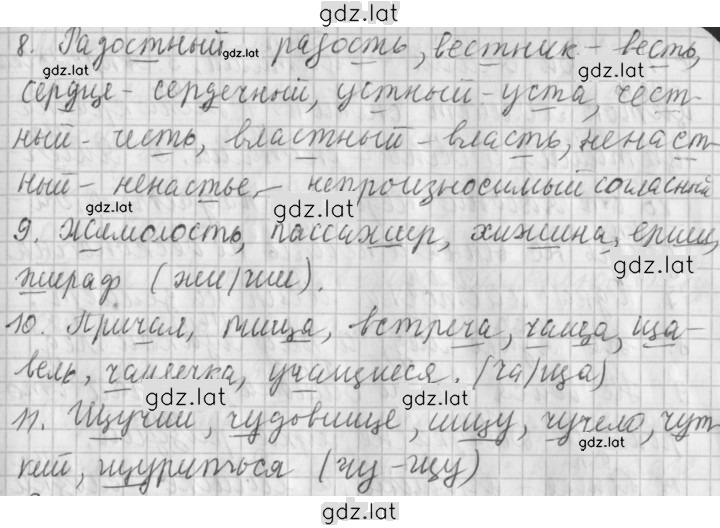 gdz.lat
8. Радостный - радость, вестник - весть,
gdz.lat
gdz.lat
gdz.lat
сердце - сердечный, устный - уста, чест-
ный - честь, властный - власть, ненаст-
ный - ненастье, - непроизносимый согласный
gdz.lat
gdz.lat
9. Жимолость, пассажир, хижина, ерши,
gdz.lat
жираф (жи/ши).
10. Причал, пища, встреча, чаща, ща-
вель, чашечка, учащиеся. (ча/ща)
gdz.lat
gdz.lat
11. Щучий, чудовище, ищу, чучело, чут-
gdz.lat
кий, щуриться (чу - щу)
gdz.lat